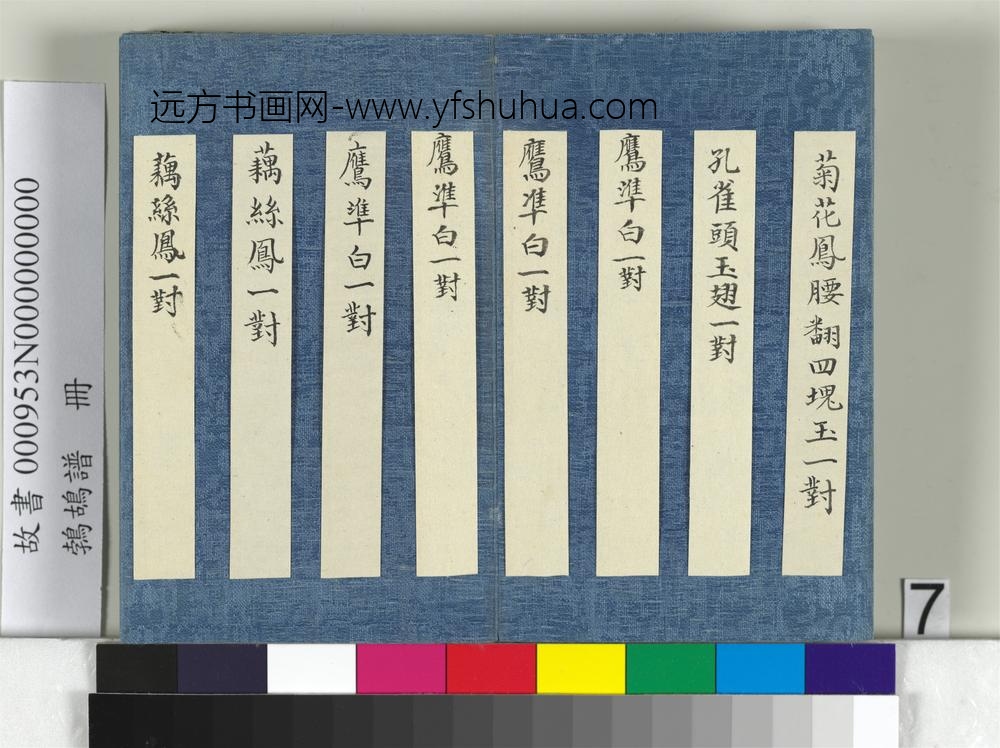 远方书画网-www.yfshuhua.com
菊花鳳腰翻四塊玉一對
孔雀頭玉翅一對
鷹準白一對
鷹準白一對
鷹準白一對
鷹準白一對
藕絲鳳一對
藕絲鳳一對
故書 000953N000000000
鵓鴣譜 冊
7